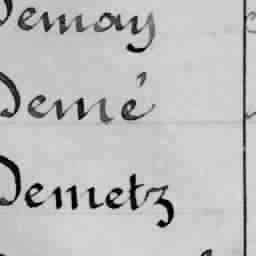 Demay
Demé
Demetz